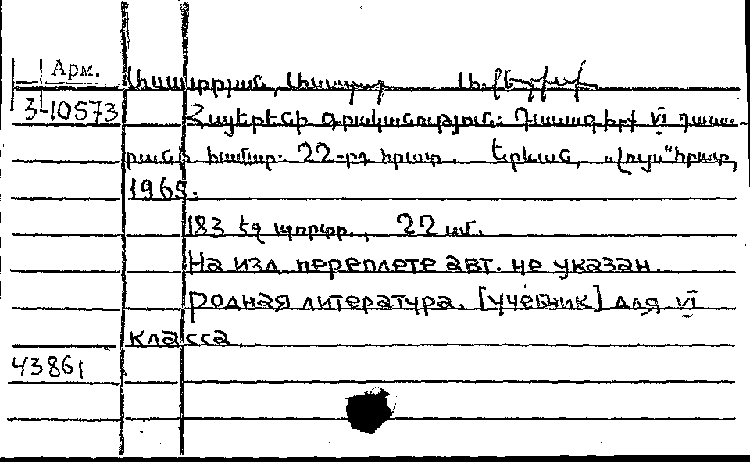 Арм.
3-10573 Հայերենի գրականություն: Դասագիրք VI դասա-
րանի համար. 22-րդ հրատ. Երևան, „Լույս“ հրատ,
1965.
183 էջ պորտր., 22 սմ.
На изд. переплете авт. не указан
Родная литература. [Учебник] для VI
класса
43861